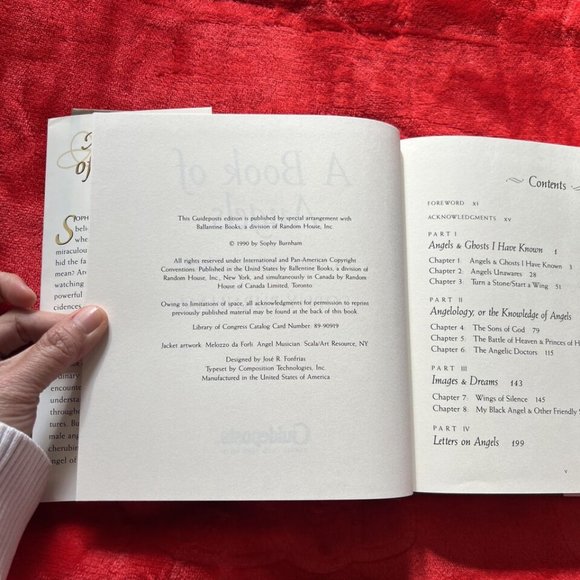 SOPH
beli
whe
miraculous
hid the fa
mean? Are
watching
powerful
cidences
ordinary
encounte
understan
throughou
tures. But
male ange
cherubim
angel of
This Guideposts edition is published by special arrangement with
Ballantine Books, a division of Random House, Inc.
© 1990 by Sophy Burnham
All rights reserved under International and Pan-American Copyright
Conventions. Published in the United States by Ballantine Books, a division of
Random House, Inc., New York, and simultaneously in Canada by Random
House of Canada Limited, Toronto.
Owing to limitations of space, all acknowledgments for permission to reprint
previously published material may be found at the back of this book.
Library of Congress Catalog Card Number: 89-90919
Jacket artwork: Melozzo da Forli. Angel Musician. Scala/Art Resource, NY.
Designed by José R. Fonfrias
Typeset by Composition Technologies, Inc.
Manufactured in the United States of America
Contents
FOREWORD xi
ACKNOWLEDGMENTS xv
PART I
Angels & Ghosts I Have Known 1
Chapter 1 Angels & Ghosts I Have Known 3
Chapter 2: Angels Unawares 28
Chapter 3: Turn a Stone/Start a Wing 51
PART II
Angelology, or the Knowledge of Angels
Chapter 4 The Sons of God 79
Chapter 5: The Battle of Heaven & Princes of H
Chapter 6: The Angelic Doctors 115
PART III
Images & Dreams 143
Chapter 7: Wings of Silence 145
Chapter 8: My Black Angel & Other Friendly
PART IV
Letters on Angels 199
v